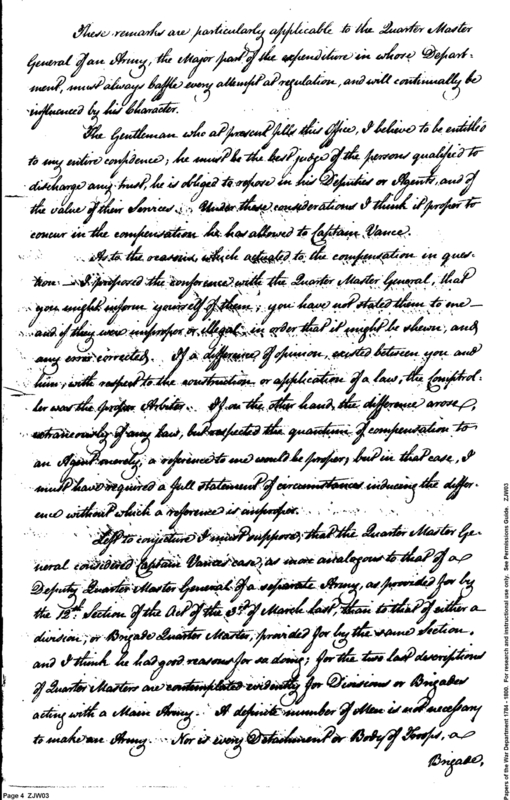 These remarks are particularly applicable to the Quarter Master
General of an Army, the Major part of the expenditure in whose Depart-
ment, must always baffle every attempt at regulation, and will continually be
influenced by his Character.
The Gentleman who at present fills this Office, I believe to be entitled
to my entire confidence; he must be the best judge of the persons qualified to
discharge any trust, he is obliged to repose in his Deputies or Agents, and of
the value of their Services. Under these considerations I think it proper to
concur in the compensation he has allowed to Captain Vance.
As to the reasons which actuated to the compensation in ques-
tion — I proposed the conference with the Quarter Master General, that
you might inform yourself of them; you have not stated them to me —
and if they were improper or illegal in order that it might be shewn, and
any error corrected. If a difference of opinion, existed between you and
him, with respect to the construction or application of a law, the Comptrol-
ler was the proper Arbiter. If on the other hand, the difference arose,
extraneously of any law, but respected the quantum of compensation to
an Agent merely, a reference to me would be proper; but in that case, I
must have required a full statement of circumstances inducing the differ-
ence without which a reference is improper.
Left to conjecture I must suppose, that the Quarter Master Ge-
neral considered Captain Vances case, as more analogous to that of a
Deputy Quarter Master General of a separate Army, as provided for by
the 12th. Section of the Act of the 3d. of March last, than to that of either a
division, or Brigade Quarter Master, provided for by the same Section.
and I think he had good reasons for so doing; for the two last descriptions
of Quarter Masters are contemplated evidently for Divisions or Brigades
acting with a Main Army. A definite number of Men is not necessary
to make an Army. Nor is every Detachment or Body of Troops, a
Brigade,
Page 4 ZJW03
Papers of the War Department 1784 - 1800. For research and instructional use only. See Permissions Guide. ZJW03